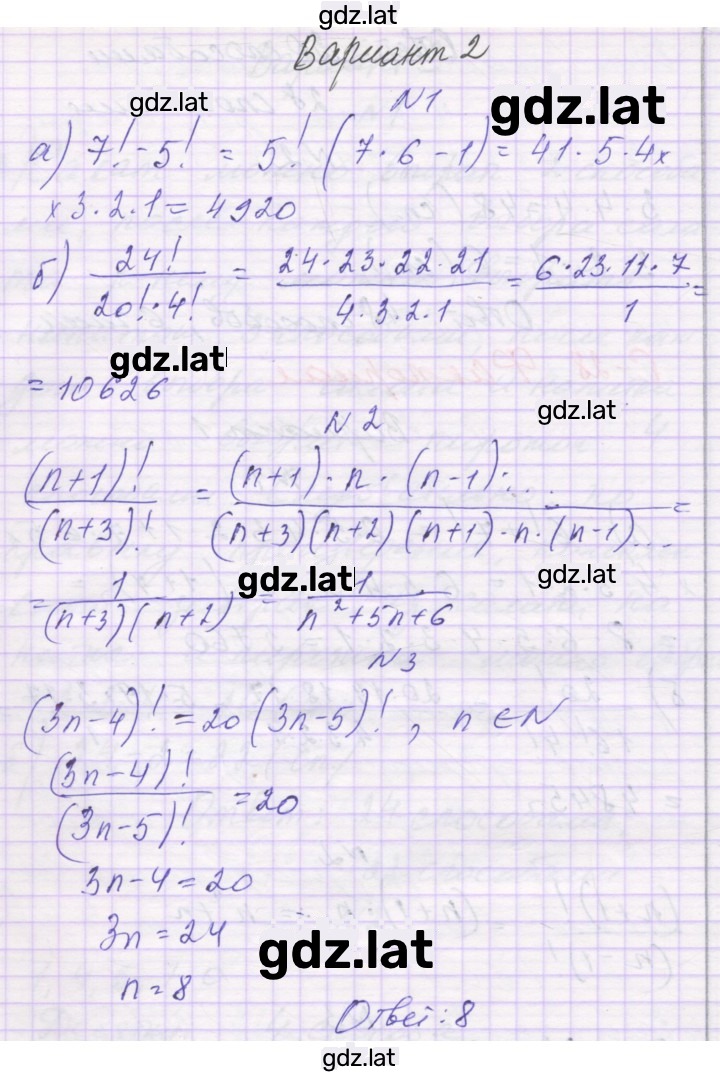 gdz.lat
Вариант 2
gdz.lat
N1
gdz.lat
а) 7! - 5! = 5! (7·6 - 1) = 41·5·4×
×3·2·1 = 4920
б) 24!/(20!·4!) = (24·23·22·21)/(4·3·2·1) = (6·23·11·7)/1 =
gdz.lat
= 10626
gdz.lat
N2
(n+1)!/(n+3)! = ((n+1)·n·(n-1)·...)/((n+3)(n+2)(n+1)·n·(n-1)...) =
gdz.lat
gdz.lat
= 1/((n+3)(n+2)) = 1/(n²+5n+6)
N3
(3n-4)! = 20(3n-5)!, n∈N
(3n-4)!/(3n-5)! = 20
3n-4 = 20
3n = 24
gdz.lat
n = 8
Ответ: 8
gdz.lat